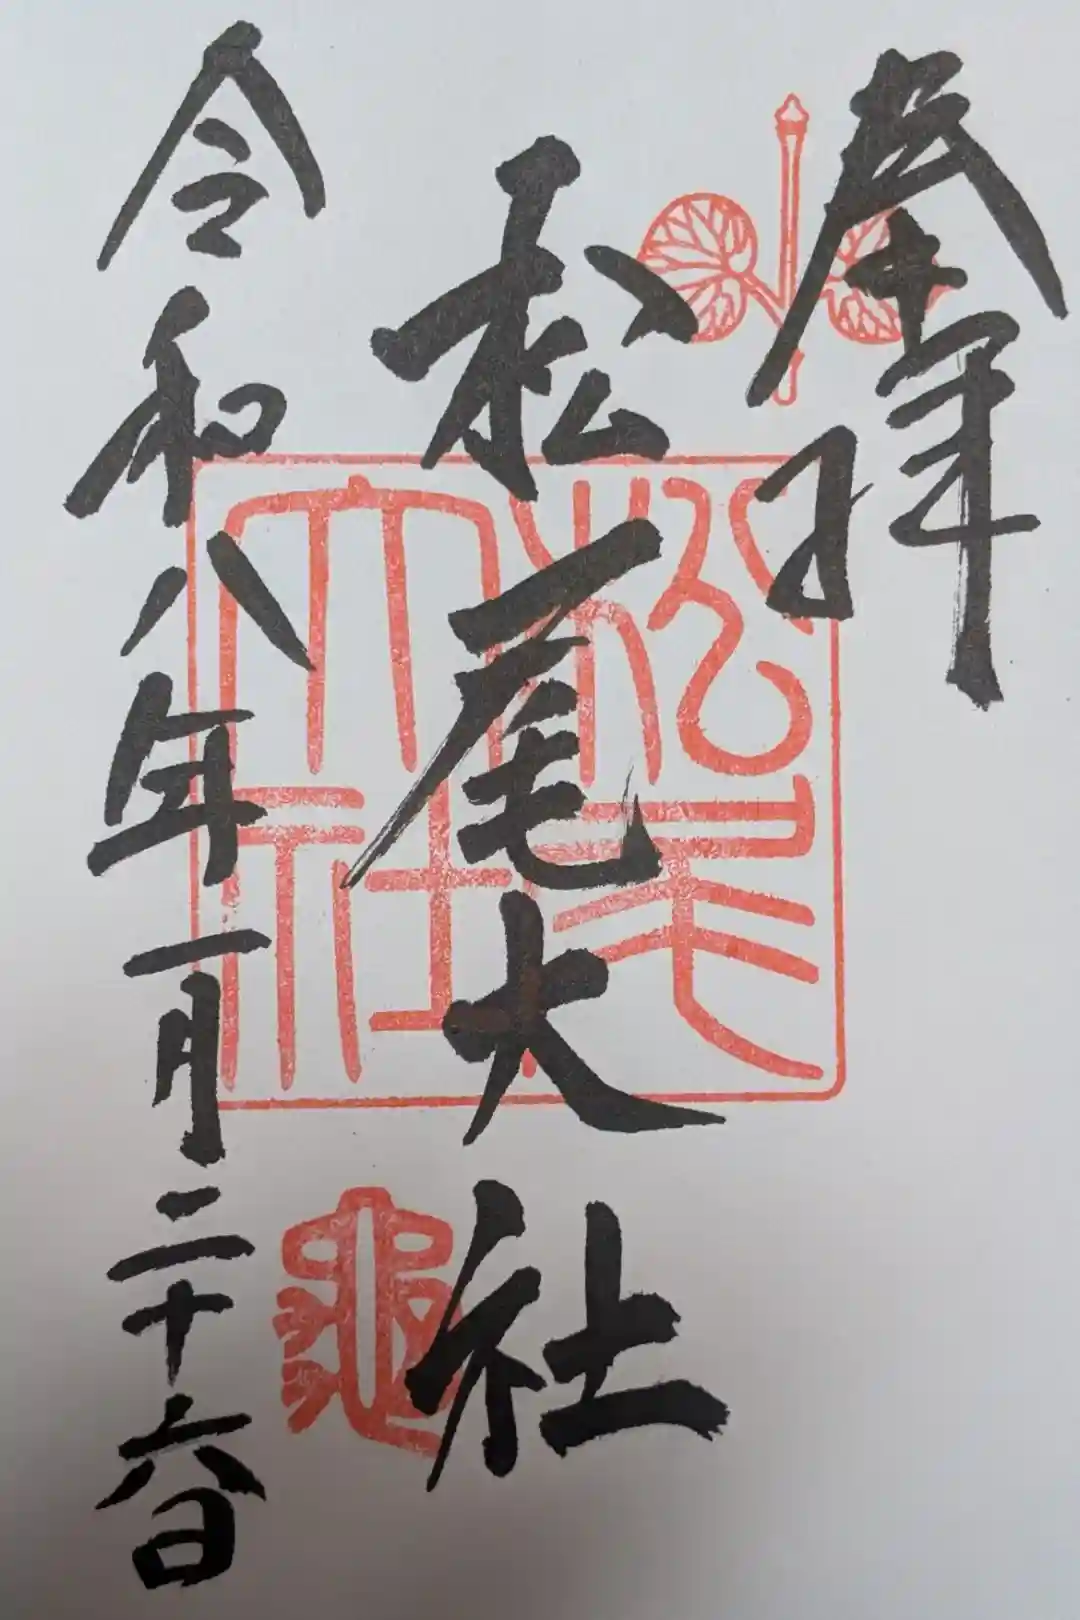 奉拝
松尾大社
令和八年一月二十六日
松尾大社
亀